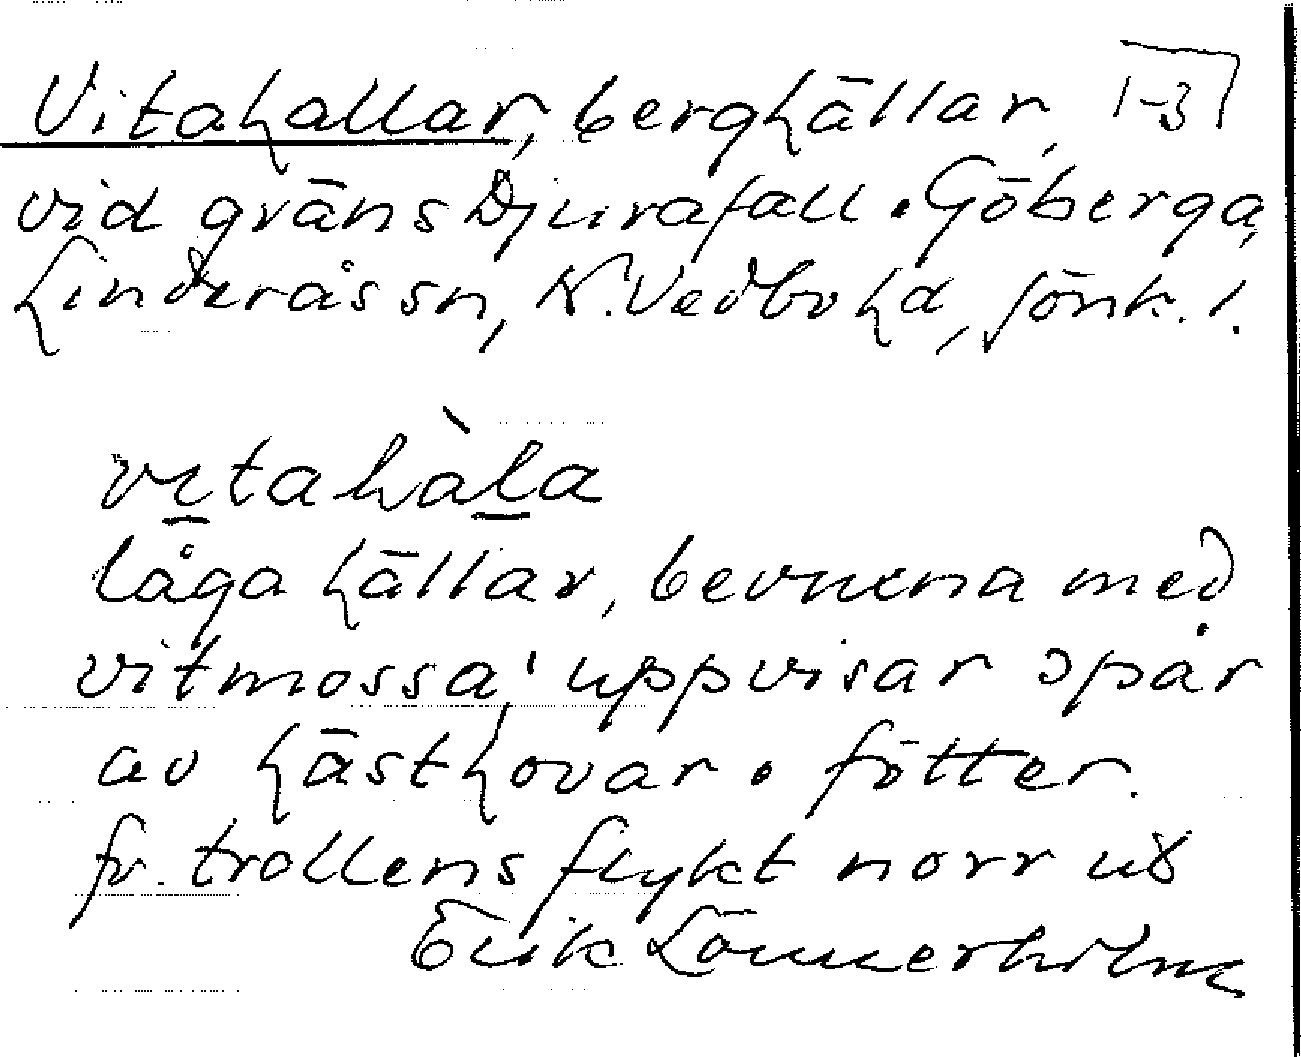 Vitahallar, berghällar, 1-3
vid gräns Djurafall • Göberga,
Linderås sn, N. Vedbo hd, Jönk. l.
vitahàla
låga hällar, bevuxna med
vitmossa; uppvisar spår
av hästhovar • fötter.
fr. trollens flykt norr ut
Erik Lönnerholm